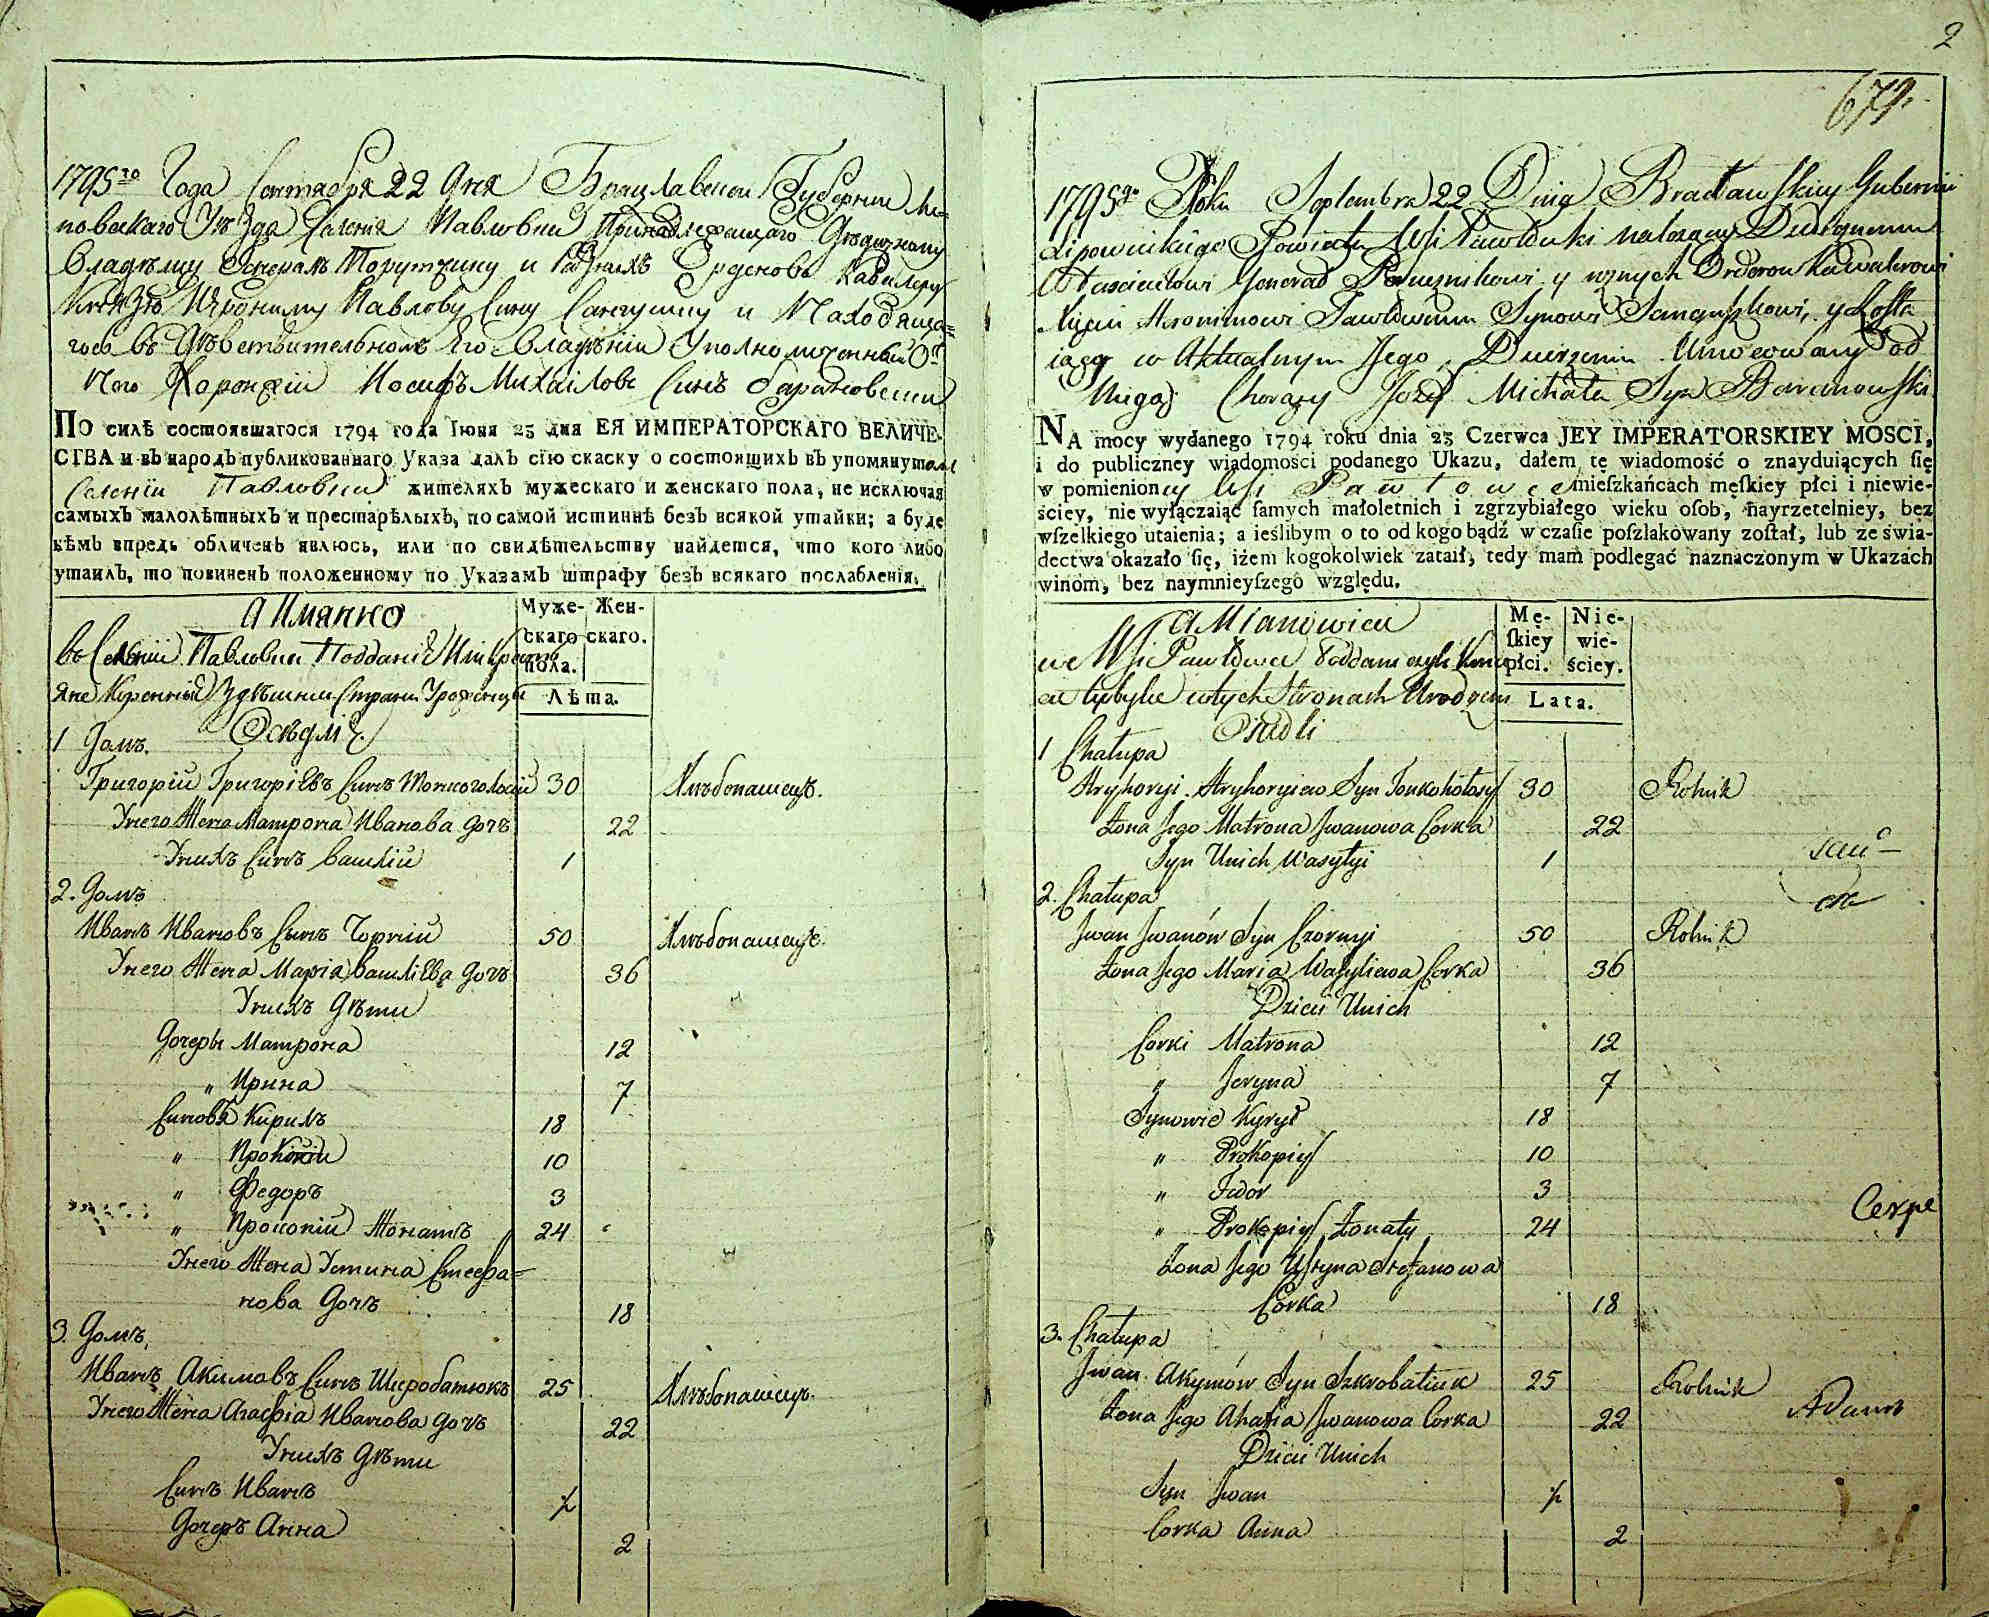 1795го Года Сентября 22 Дня Брацлавской Губернии Ли=
повскаго Уѣзда Селения Павловки Принадлежащаго Дѣдичному
Владѣлцу Генералъ Порутчику и Разныхъ Орденовъ Кавалеру
Князю Иерониму Павлову Сину Сангушку и Находяща=
гося въ Дѣйствительномъ Его Владѣнии Уполномоченный От
Него Хоронжій Иосифъ Михайловъ Синъ Барановский
По силѣ состоявшагося 1794 года Іюня 23 дня ЕЯ ИМПЕРАТОРСКАГО ВЕЛИЧЕ-
СТВА и въ народъ публикованнаго Указа далъ сію скаску о состоящихъ въ упомянутомъ
Селеніи Павловки жителяхъ мужескаго и женскаго пола, не исключая
самыхъ малолѣтныхъ и престарѣлыхъ, по самой истиннѣ безъ всякой утайки; а буде
кѣмъ впредь обличенъ явлюсь, или по свидѣтельству найдется, что кого либо
утаилъ, то повиненъ положенному по Указамъ штрафу безъ всякаго послабленія.
А Имянно
Муже- Жен-
скаго скаго.
пола.
Лѣта.
въ Селеніи Павловки Подданіе
Оседліе
1 Домъ.
Григорій Григоріевъ Синъ Тонкоголосій 30 Хлѣбопашецъ.
У него Жена Матрона Иванова Дочь 22
У нихъ Синъ Василій 1
2. Домъ
Иванъ Ивановъ Сынъ Чорній 50 Хлѣбопашецъ.
У него Жена Марія Василіева Дочь 36
У нихъ Дѣти
Дочеры Матрона 12
„ Ирина 7
Синовѣ Кирилъ 18
„ Прокопій 10
„ Федоръ 3
„ Прокопій Жонатъ 24
У него Жена Устина Стефа=
нова Дочь 18
3. Домъ
Иванъ Акимовъ Синъ Шкробатюкъ 25 Хлѣбопашецъ.
У него Жена Агафіа Иванова Дочь 22
У нихъ Дѣти
Синъ Иванъ ½
Дочеръ Анна 2
2
679.
1795go Roku Septembra 22 Dnia Bracławskiey Gubernii
Lipowieckiego Powiatu Wsi Pawłowki należącey Dziedzicznemu
Właścicielowi Generał Porucznikowi y rożnych Orderow Kawalerowi
Xięciu Hieronimowi Pawłowemu Synowi Sanguszkowi, y Zosta=
iącey w Aktualnym Jego Dzierżeniu Umocowany od
Niego Chorąży Jozef Michała Syn Baranowski
NA mocy wydanego 1794 roku dnia 23 Czerwca JEY IMPERATORSKIEY MOSCI,
i do publiczney wiadomości podanego Ukazu, dałem tę wiadomość o znayduiących ſię
w pomienioney Wsi Pawłowce mieſzkańcach męſkiey płci i niewie-
ściey, nie wyłączaiąc ſamych małoletnich i zgrzybiałego wieku oſob, nayrzetelniey, bez
wſzelkiego utaienia; a ieślibym o to od kogo bądź w czaſie poſzlakowany zoſtał, lub ze świa-
dectwa okazało ſię, iżem kogokolwiek zataił, tedy mam podlegać naznaczonym w Ukazach
winom, bez naymnieyſzego względu.
A Mianowicie
Mę- Nie-
ſkiey wie-
płci. ściey.
Lata.
we Wsi Pawłowce Poddani czyli
w tych Stronach Urodzeni
Osiadli
1 Chałupa
Hryhoryi Hryhoryiew Syn Tonkohołosy 30 Rolnik
Żona Jego Matrona Jwanowa Corka 22
Syn Unich Wasylyi 1
2. Chałupa
Jwan Jwanów Syn Czornyi 50 Rolnik
Żona Jego Maria Wasyliewa Corka 36
Dzieci Unich
Corki Matrona 12
„ Jeryna 7
Synowie Kyrył 18
„ Prokopiy 10
„ Fedor 3
„ Prokopiy Żonaty 24
Żona Jego Ustyna Stefanowa
Corka 18
3. Chałupa
Jwan Akymów Syn Szkrobatiuk 25 Rolnik
Żona Jego Ahafia Jwanowa Corka 22
Dzieci Unich
Syn Jwan ½
Corka Anna 2